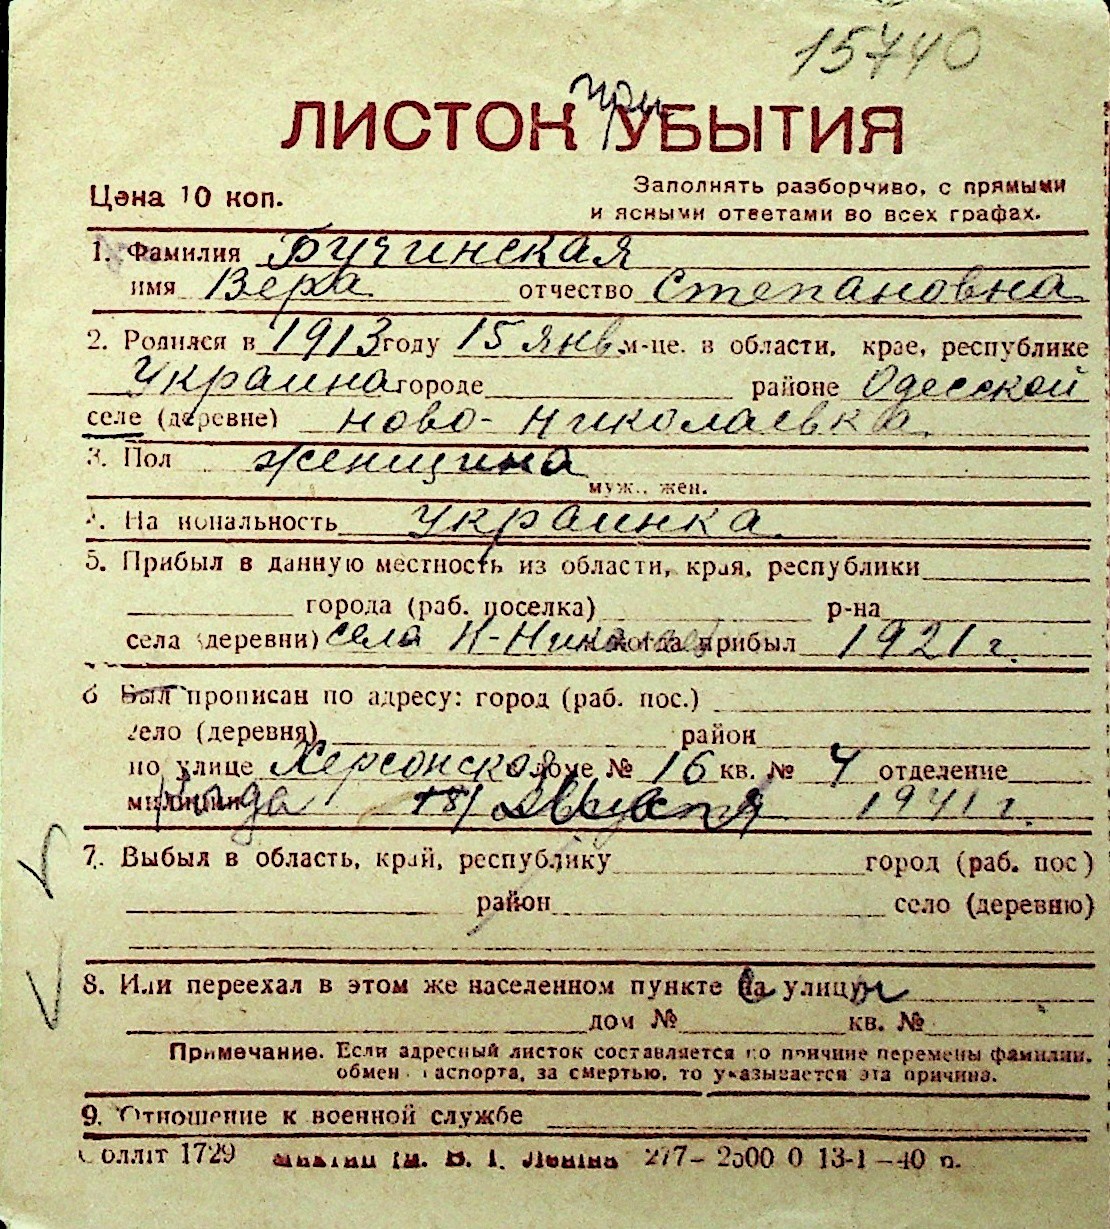 15740
при
ЛИСТОК УБЫТИЯ
Цена 10 коп.
Заполнять разборчиво, с прямыми
и ясными ответами во всех графах.
1. Фамилия Бучинская
имя Вера отчество Степановна
2. Родился в 1913 году 15 янв. м-це. в области, крае, республике
Украина городе районе Одесской
селе (деревне) Ново-Николаевка
3. Пол женщина
муж., жен.
4. Национальность украинка
5. Прибыл в данную местность из области, края, республики
города (раб. поселка) р-на
села (деревни) села Н-Никола когда прибыл 1921 г.
6 Был прописан по адресу: город (раб. пос.)
село (деревня) район
по улице Херсонской доме № 16 кв. № 4 отделение
милиции 181 августа 1941 г.
7. Выбыл в область, край, республику город (раб. пос)
район село (деревню)
8. Или переехал в этом же населенном пункте на улицу
дом № кв. №
Примечание. Если адресный листок составляется по причине перемены фамилии,
обмен паспорта, за смертью, то указывается эта причина.
9. Отношение к военной службе
Обллiт 1729 iм. В. I. Ленiна 277– 2500 0 13-1 –40 р.